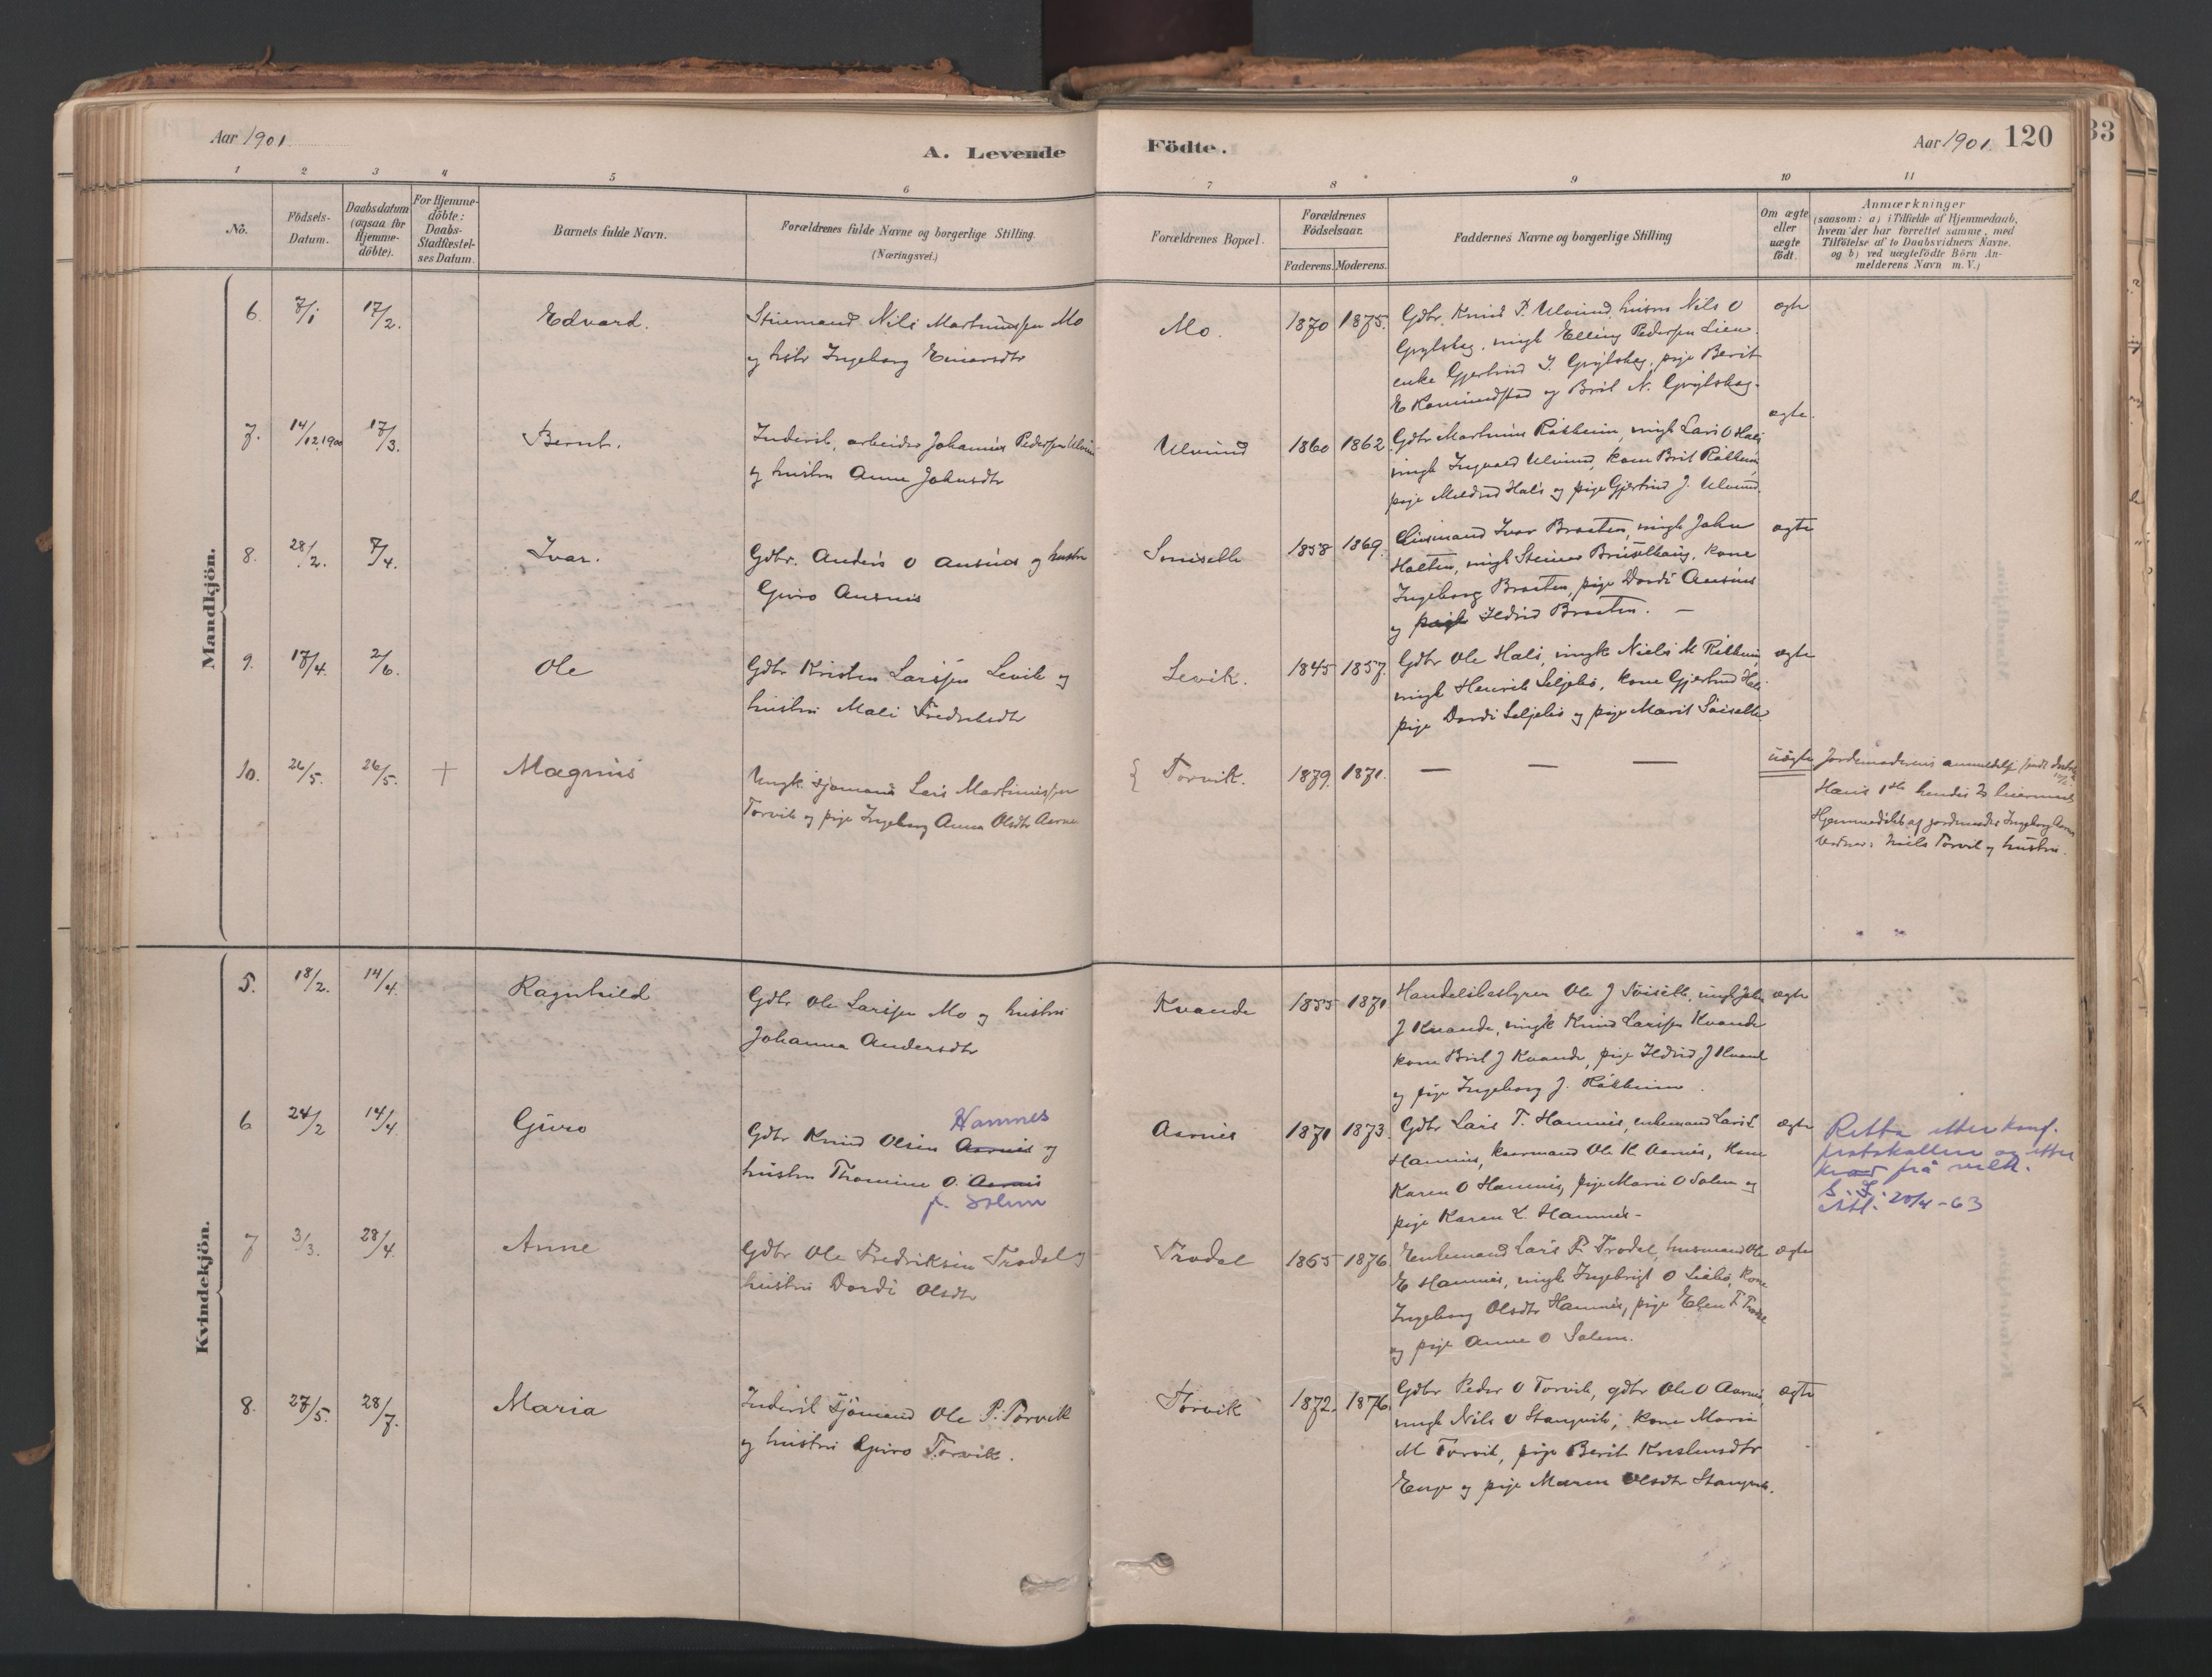 Aar 1901
A. Levende
Födte.
Aar 1901. 120
33
1 2 3 4 5 6 7 8 9 10 11
No.
Födsels-
Datum.
Daabsdatum
(ogsaa for
Hjemme-
döbte).
For Hjemme-
döbte:
Daabs-
Stadfæstel-
ses Datum.
Barnets fulde Navn.
Forældrenes fulde Navne og borgerlige Stilling.
(Næringsvei.)
Forældrenes Bopæl.
Forældrenes
Födselsaar.
Faderens. Moderens.
Faddernes Navne og borgerlige Stilling
Om ægte
eller
uægte
födt.
Anmærkninger
(saasom: a) i Tilfælde af Hjemmedaab,
hvem der har forrettet samme, med
Tilföielse af to Daabsvidners Navne.
og b) ved uægtefödte Börn An-
melderens Navn m. V.)
Mandkjön.
6. 7/1 17/2. Edvard.
Nils Mo
og Ingeborg Einarsdtr
Mo. 1870 1875.
Gdbr. Knud P. Ulvund, Nils O
ungk Elling Pedersen Lien.
enke Gjertrud pige Berit
og Brit N.
ægte
7. 14/12.1900 17/3. Bernt.
Inderst, arbeider Johannes Pedersen Ulvund
og hustru Anne Johnsdtr
Ulvund 1860 1862
Gdbr Martinus ungk Lars O Hals
ungk Ingvald Ulvund, kone Brit
pige Hals og pige Gjertrud J. Ulvund.
ægte.
8. 28/2. 7/4. Ivar.
Gdbr. Anders O Ansnes og hustru
Guro Ansnes
1858 1869.
Ivar Braaten, ungk John
Halten, ungk Steinar kone
Ingeborg Braaten, pige Dordi Ansnes
og Ildrid Braaten. —
ægte
9. 17/4. 2/6. Ole
Gdbr Kristen Larssen Levik og
hustru Mali Fredriksdtr
Levik. 1845 1857.
Gdbr Ole Hals, ungk Niels M
ungk Henrik Seljebö, kone Gjertrud Hals
pige Dordi Seljebö og pige Marit
ægte
10. 26/5. 26/5. + Magnus
Ungk. sjömand Lars Martinussen
Torvik og pige Ingeborg Anna Olsdtr Aarnes
Torvik. 1879. 1871. — — —
uægte
Jordemoderens anmeldelse
Hans 1ste hendes 2
Hjemmedöbt af jordmoder Ingeborg Aarnes
Vidner: Niels Torvik og hustru.
Kvindekjön.
5. 18/2. 14/4. Ragnhild
Gdbr Ole Larssen Mo og hustru
Johanna Andersdtr
Kvande 1855 1870
Handelsbestyrer Ole J ungk John
J Kvande, ungk Knud Larssen Kvande
kone Brit J Kvande, pige Ildrid J Kvande
og pige Ingeborg J.
ægte
6 24/2 14/4 Guro
Hamnes
Gdbr Knud Olsen Aarnes og
hustru Thomine O. Aarnes
f. Solem
Aarnes 1870 1873.
Gdbr Lars T. Hamnes, enkemand Lars L
Hamnes, Ole K Aarnes, Kone
Karen O Hamnes, pige Marie O Solem og
pige Karen L. Hamnes.
ægte
Retta etter konf.
protokollen og etter
krav frå
20/4-63
7 3/3. 28/4. Anne
Gdbr Ole Fredriksen Trodal og
hustru Dordi Olsdtr
Trodal 1865 1876.
Enkemand Lars F. Trodal, husmand Ole
E Hamnes, ungk Ingebrigt O kone
Ingeborg Olsdtr Hamnes, pige Elen F. Trodal
og pige Anne O Solem.
ægte
8. 27/5. 28/7. Maria
Inderst Sjömand Ole P. Torvik
og hustru Guro Torvik.
Torvik 1872. 1876.
Gdbr Peder O Torvik, gdbr Ole O Aarnes,
ungk Nils O Stangvik, kone Maria
M Torvik, pige Berit Kristensdtr
Enge og pige Maren Olsdtr Stangvik.
ægte